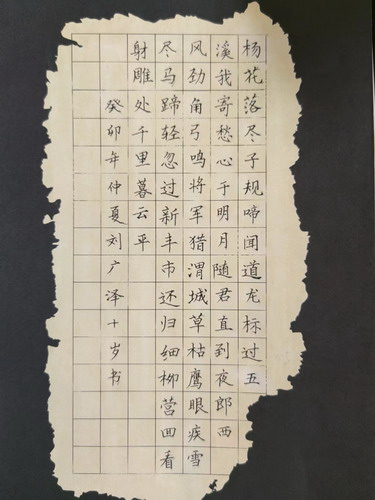 杨花落尽子规啼闻道龙标过五
溪我寄愁心于明月随君直到夜郎西
风劲角弓鸣将军猎渭城草枯鹰眼疾雪
尽马蹄轻忽过新丰市还归细柳营回看
射雕处千里暮云平
癸卯年仲夏刘广泽十岁书